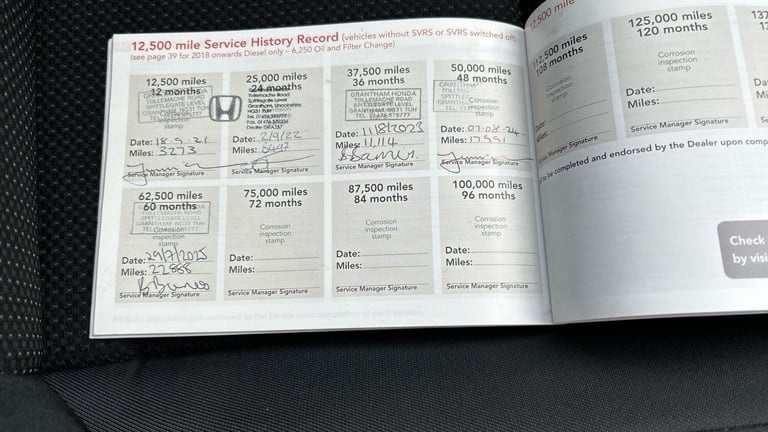 12,500 mile Service History Record (vehicles without SVRS or SVRS switched off)
(see page 39 for 2018 onwards Diesel only – 6,250 Oil and Filter Change)
12,500 miles
12 months
TOLLEMACHE ROAD
SPITTLEGATE LEVEL
GRANTHAM NG31 7UH
inspection
stamp
Date: 18.9.21
Miles: 3273
Service Manager Signature
25,000 miles
24 months
Tollemache Road
Spittlegate Level
Grantham, Lincolnshire
NG31 7UH
Date: 2/9/22
Miles:
Service Manager Signature
37,500 miles
36 months
GRANTHAM HONDA
TOLLEMACHE ROAD
SPITTLEGATE LEVEL
GRANTHAM NG31 7UH
Date: 11/8/2023
Miles: 11,114
Service Manager Signature
50,000 miles
48 months
GRANTHAM
Corrosion
inspection
stamp
Date: 07.08.24
Miles: 17991
Service Manager Signature
62,500 miles
60 months
TOLLEMACHE ROAD
SPITTLEGATE LEVEL
GRANTHAM NG31 7UH
Corrosion
inspection
stamp
Date: 29/7/2025
Miles: 22888
Service Manager Signature
75,000 miles
72 months
Corrosion
inspection
stamp
Date:
Miles:
Service Manager Signature
87,500 miles
84 months
Corrosion
inspection
stamp
Date:
Miles:
Service Manager Signature
100,000 miles
96 months
Corrosion
inspection
stamp
Date:
Miles:
Service Manager Signature
12,500 mile
112,500 miles
108 months
Corrosion
inspection
stamp
Date:
Miles:
Service Manager Signature
125,000 miles
120 months
Corrosion
inspection
stamp
Date:
Miles:
Service Manager Signature
to be completed and endorsed by the Dealer upon
Check
by